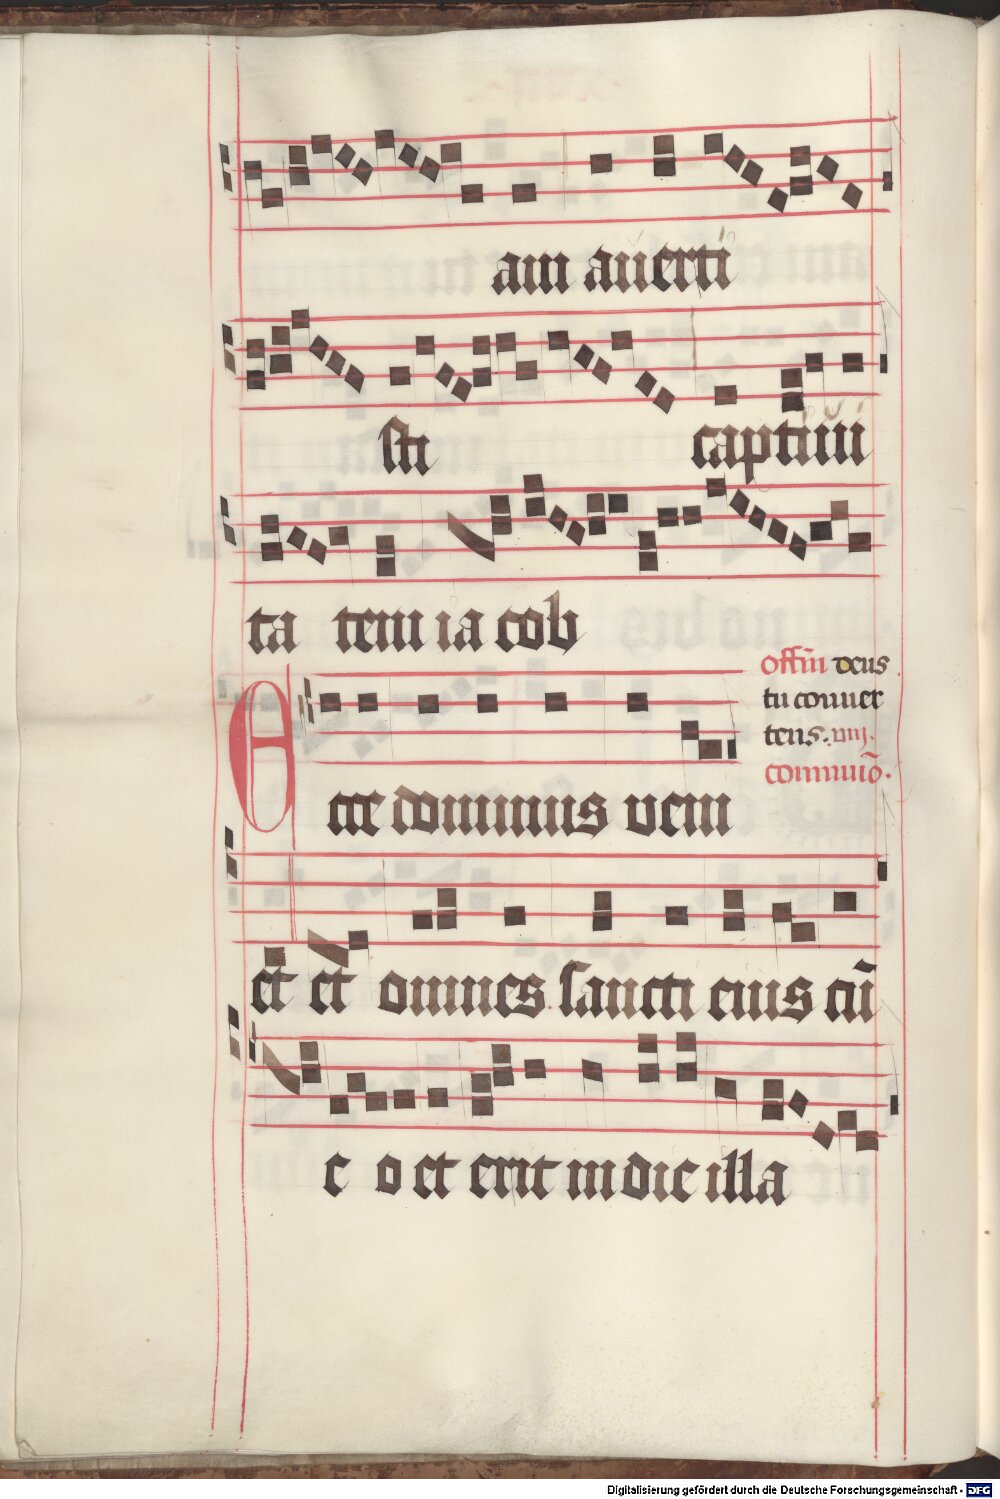 am auerti
sti captiui
ta tem ia cob
Offm̄ deus
tu conuer
tens. iiij.
Cōmuniō.
Ecce dominus veni
et et omnes sancti eius cū
e o et erit in die illa
Digitalisierung gefördert durch die Deutsche Forschungsgemeinschaft - DFG